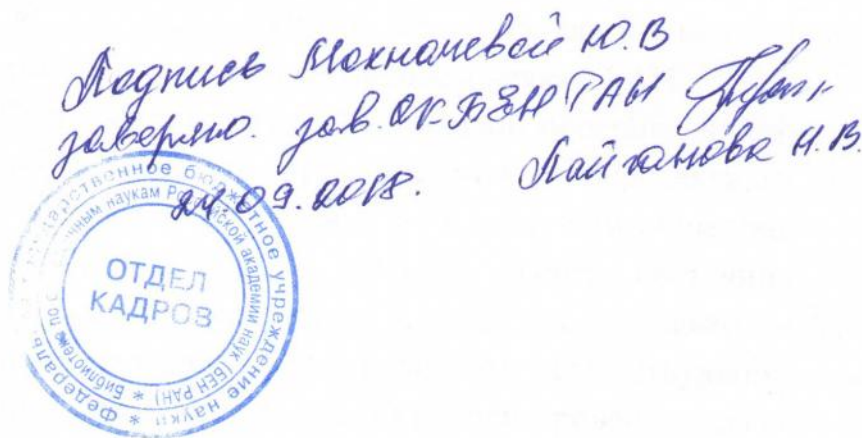 Подпись Мохначевой Ю.В
заверяю. зав. ОК БЕН РАН
24.09.2018.
Н.В.
ОТДЕЛ
КАДРОВ
Федеральное государственное бюджетное учреждение науки *
Библиотека по естественным наукам Российской академии наук (БЕН РАН) *